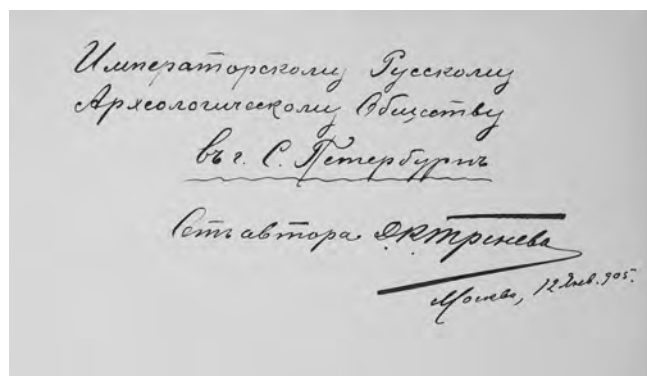 Императорскому Русскому
Археологическому Обществу
въ г. С. Петербургѣ
Отъ автора Д.К.Тренева
Москва, 12 Янв. 905.